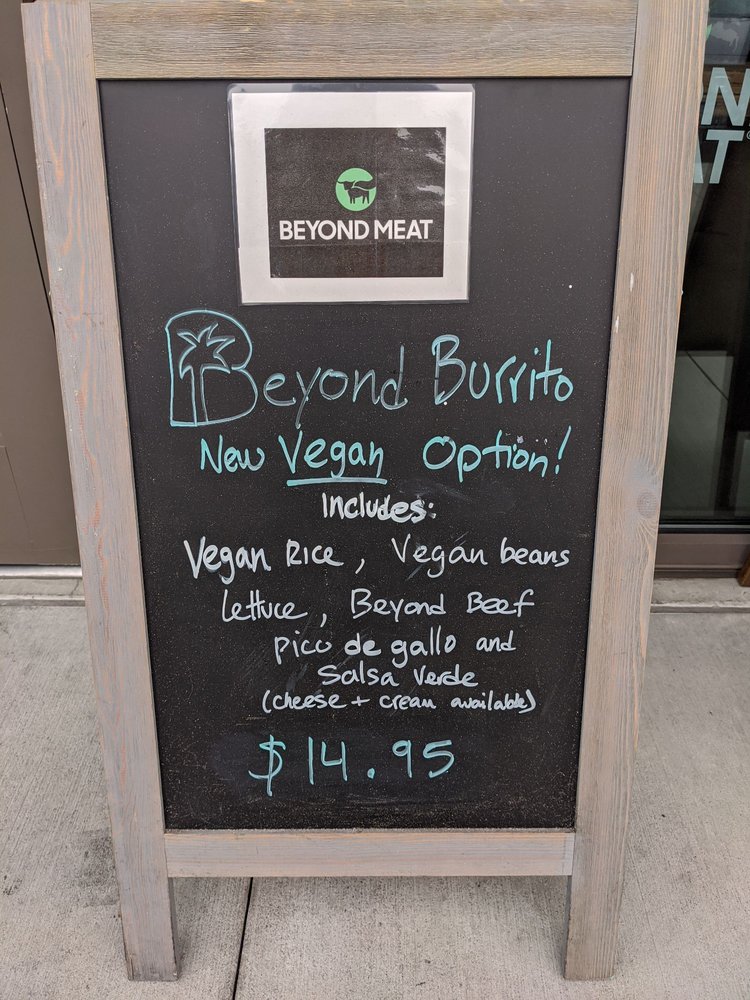 BEYOND MEAT
Beyond Burrito
New Vegan Option!
Includes:
Vegan Rice, Vegan beans
Lettuce, Beyond Beef
pico de gallo and
Salsa Verde
(cheese + cream available)
$14.95